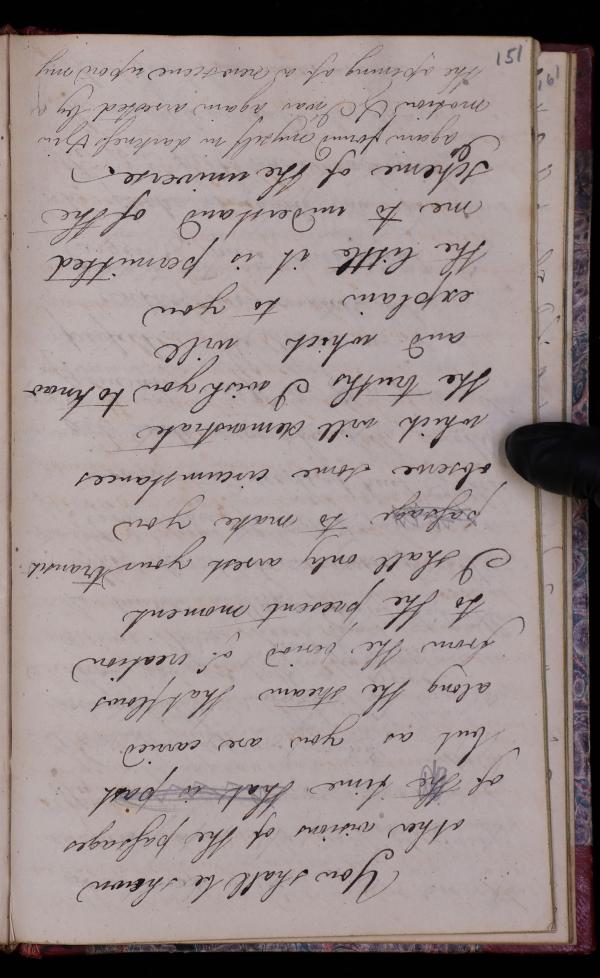 151
You shall be shown
other visions of the passages
of the time that is past
but as you are carried
along the stream that flows
from the period of creation
to the present moment
I shall only arrest your transit
passage to make you
observe some circumstances
which will demonstrate
the truths I wish you to know
and which will
explain to you
the little it is permitted
me to understand of the
scheme of the universe.
I again found myself in darkness & in
motion & I was again arrested by
the opening of a new scene upon my